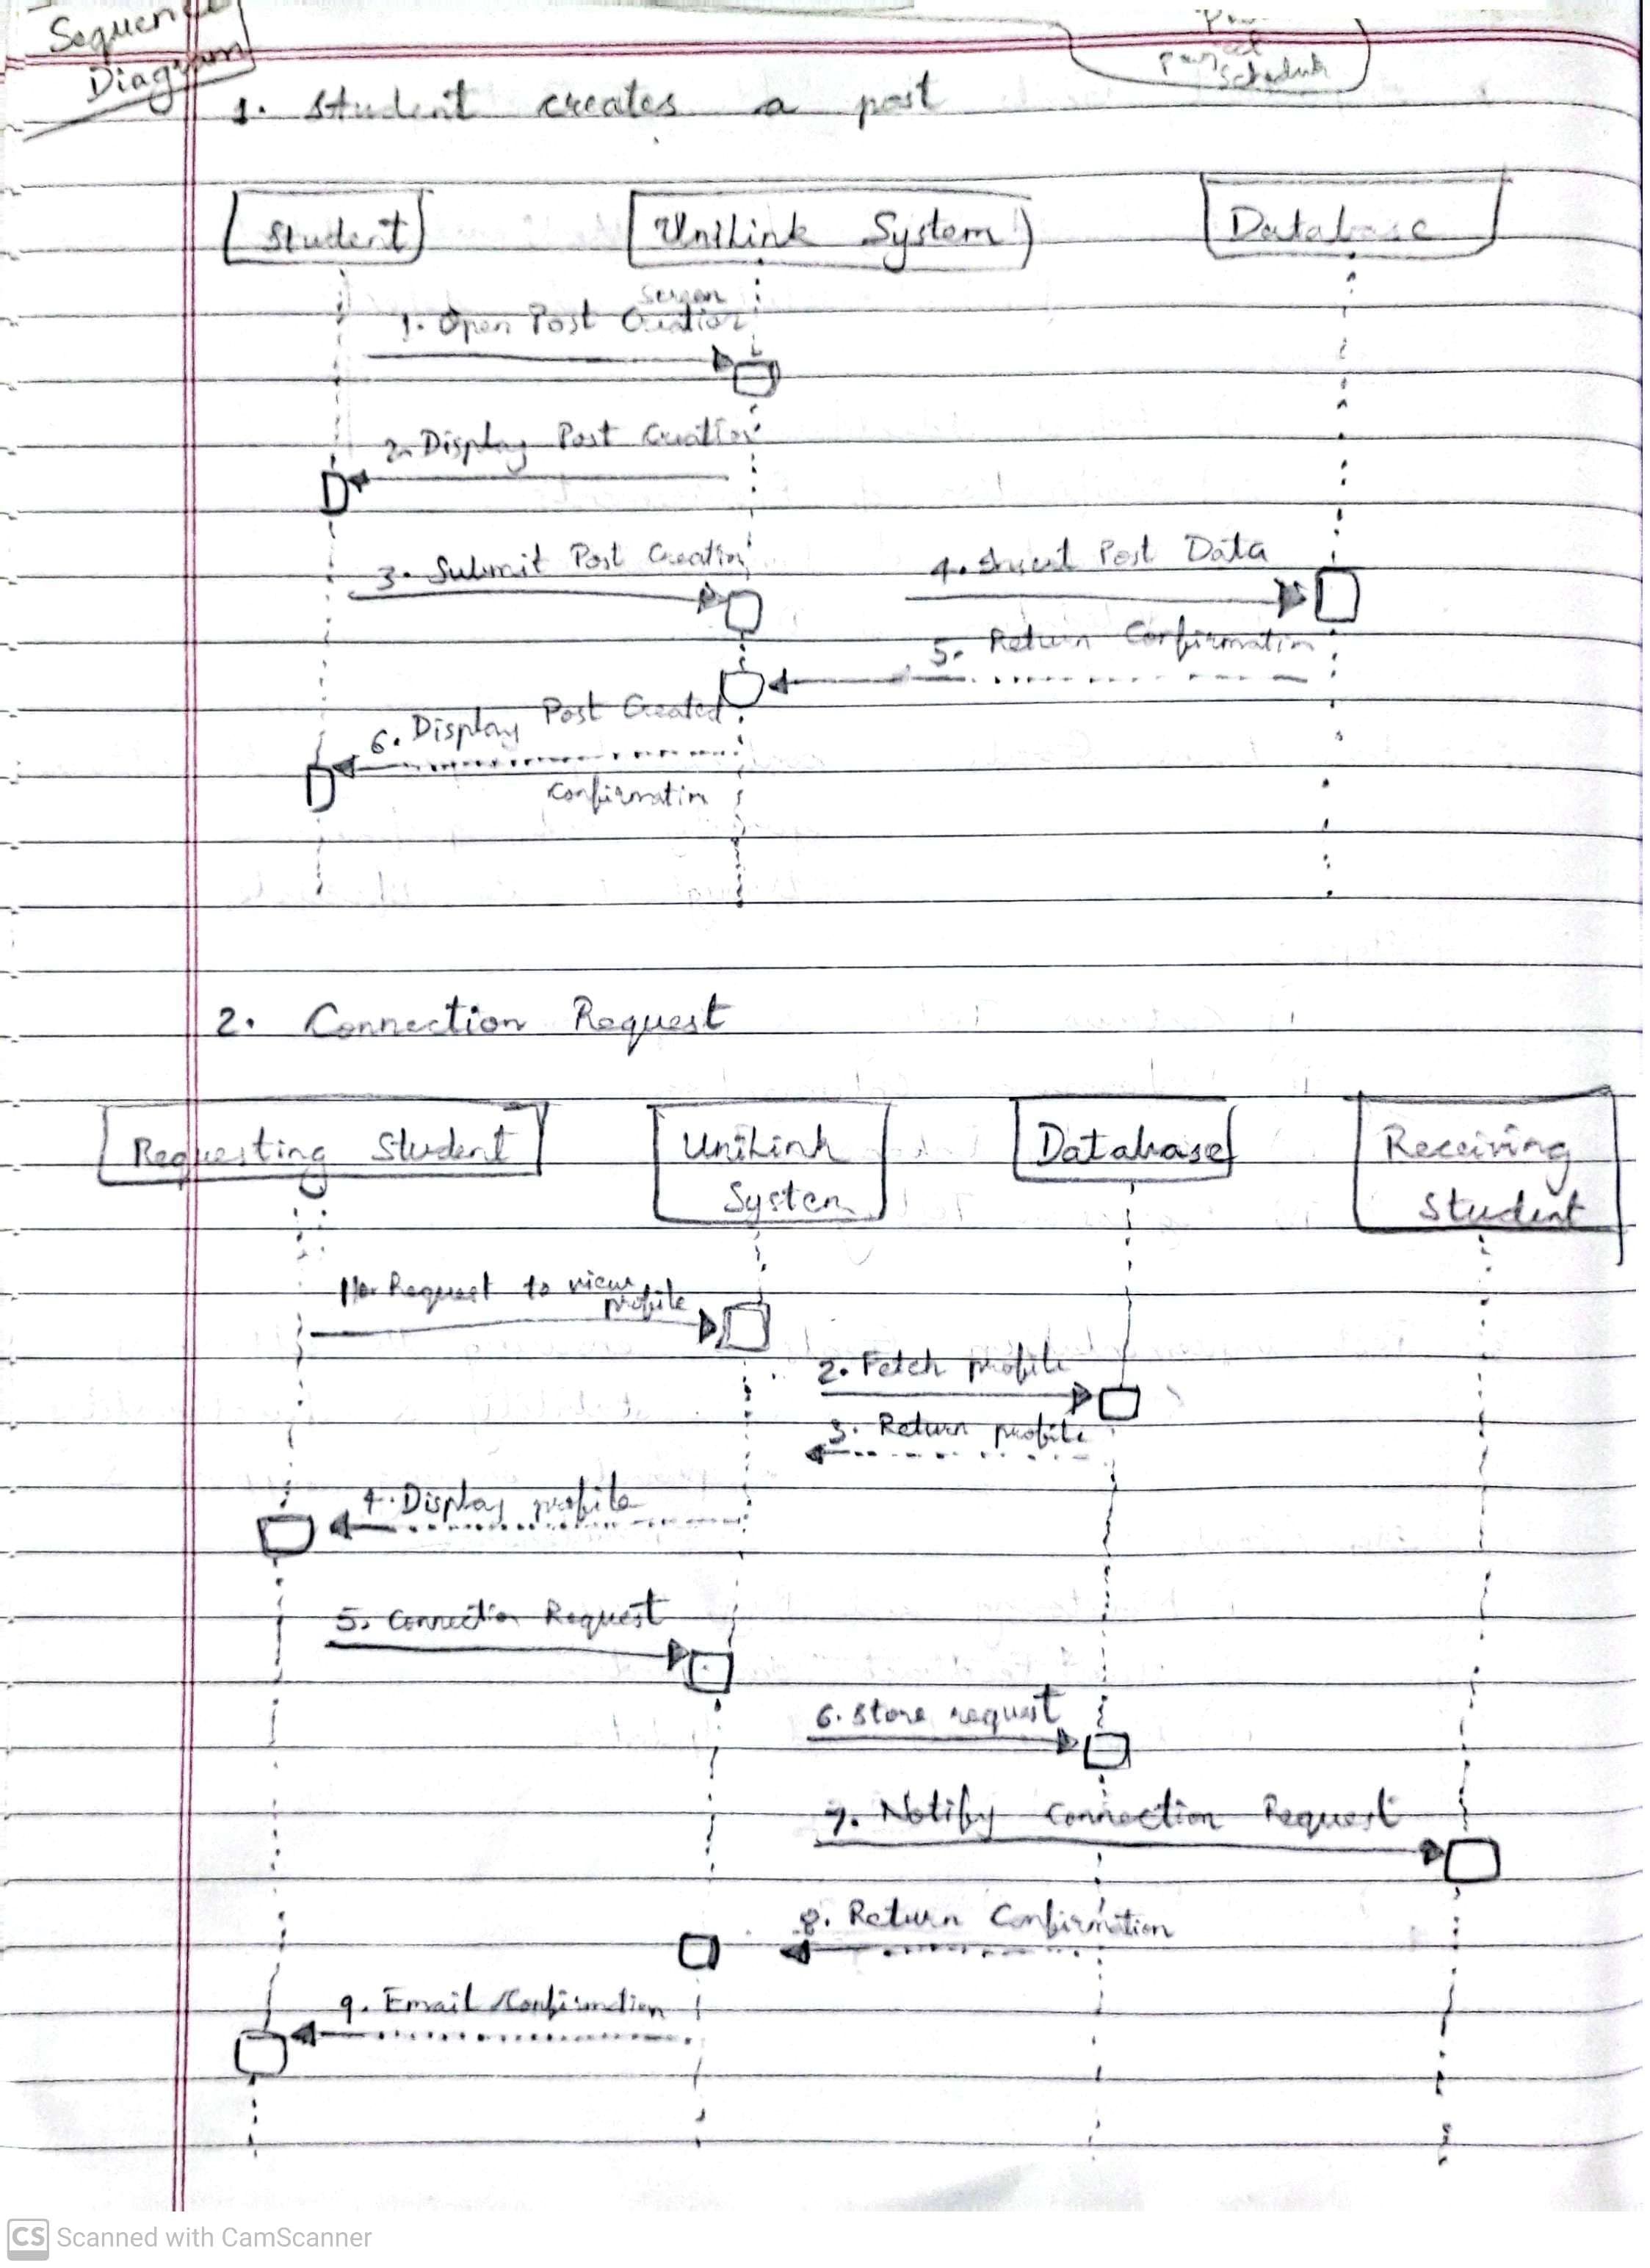 Sequence
Diagram
Schedule
1. Student creates a post
Student
UniLink System
Database
Screen
1. Open Post Creation
2. Display Post Creation
3. Submit Post Creation
4. Insert Post Data
5. Return Confirmation
6. Display Post Created
Confirmation
2. Connection Request
Requesting Student
UniLink
System
Database
Receiving
Student
1. Request to view
profile
2. Fetch profile
3. Return profile
4. Display profile
5. Connection Request
6. Store request
7. Notify Connection Request
8. Return Confirmation
9. Email Confirmation
CS Scanned with CamScanner